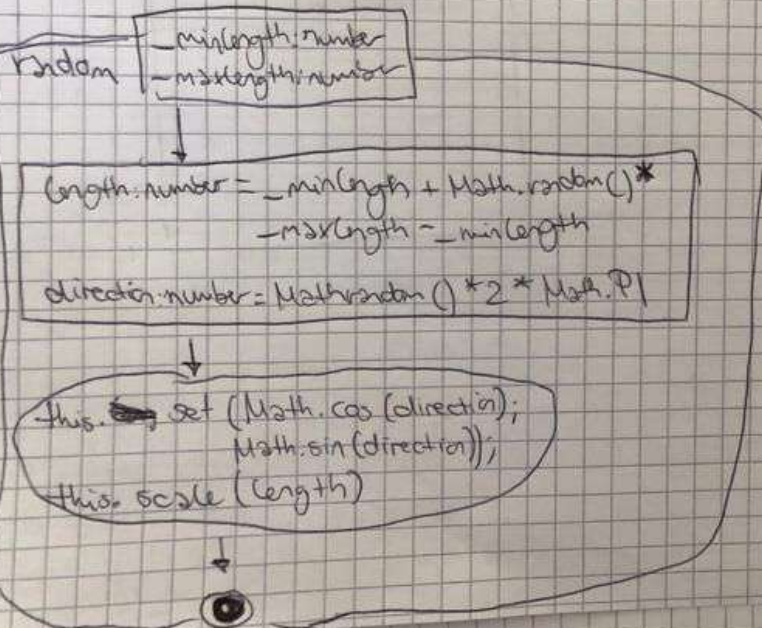 _minlength:number
random
_maxlength:number
length:number = _minlength + Math.random()*
_maxlength - _minlength
direction:number = Mathrandom() * 2 * Math.PI
this. set (Math.cos (direction);
Math.sin (direction));
this. scale (length)